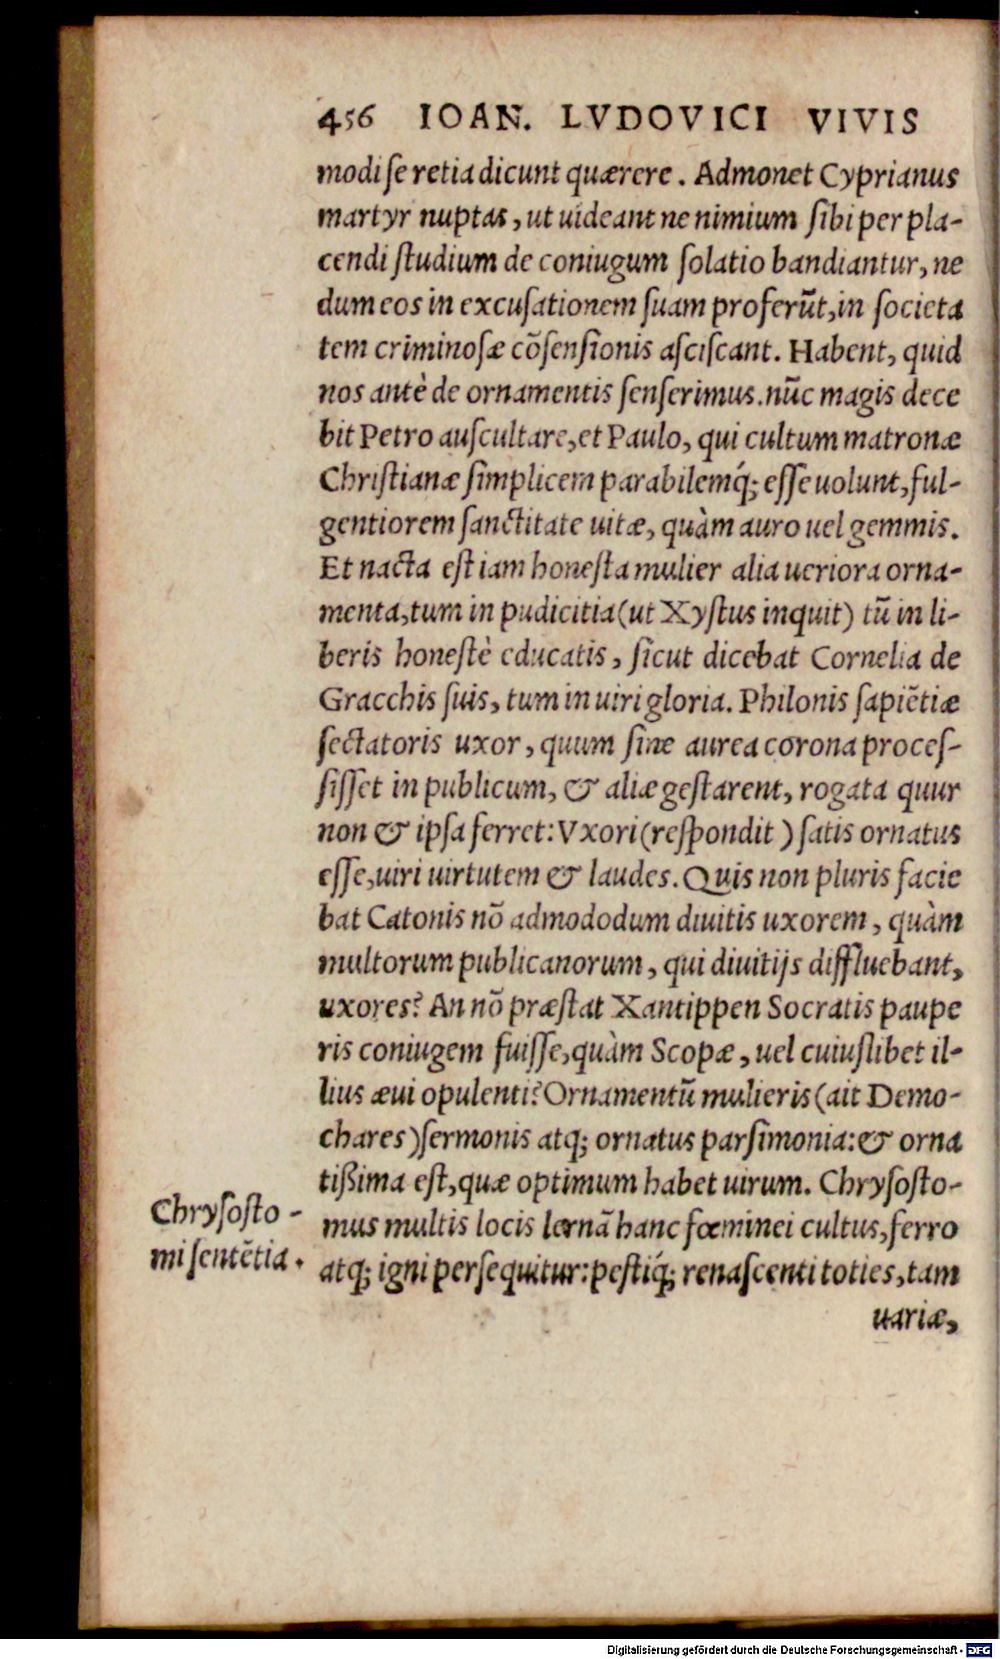 456 IOAN. LVDOVICI VIVIS
modi se retia dicunt quærere. Admonet Cyprianus
martyr nuptas, ut uideant ne nimium sibi per pla-
cendi studium de coniugum solatio bandiantur, ne
dum eos in excusationem suam proferūt, in societa
tem criminosæ cōsensionis asciscant. Habent, quid
nos antè de ornamentis senserimus. nūc magis dece
bit Petro auscultare, et Paulo, qui cultum matronæ
Christianæ simplicem parabilemq́; esse uolunt, ful-
gentiorem sanctitate uitæ, quàm auro uel gemmis.
Et nacta est iam honesta mulier alia ueriora orna-
menta, tum in pudicitia (ut Xystus inquit) tū in li-
beris honestè educatis, sicut dicebat Cornelia de
Gracchis suis, tum in uiri gloria. Philonis sapiētiæ
sectatoris uxor, quum sine aurea corona proces-
sisset in publicum, & aliæ gestarent, rogata quur
non & ipsa ferret: Vxori (respondit) satis ornatus
esse, uiri uirtutem & laudes. Quis non pluris facie
bat Catonis nō admododum diuitis uxorem, quàm
multorum publicanorum, qui diuitijs diffluebant,
uxores? An nō præstat Xantippen Socratis paupe
ris coniugem fuisse, quàm Scopæ, uel cuiuslibet il-
lius æui opulenti? Ornamentū mulieris (ait Demo-
chares) sermonis atq; ornatus parsimonia: & orna
tißima est, quæ optimum habet uirum. Chrysosto-
mus multis locis lernā hanc fœminei cultus, ferro
atq; igni persequitur: pestiq́; renascenti toties, tam
uariæ,
Chrysosto-
mi sentētia.
Digitalisierung gefördert durch die Deutsche Forschungsgemeinschaft - DFG